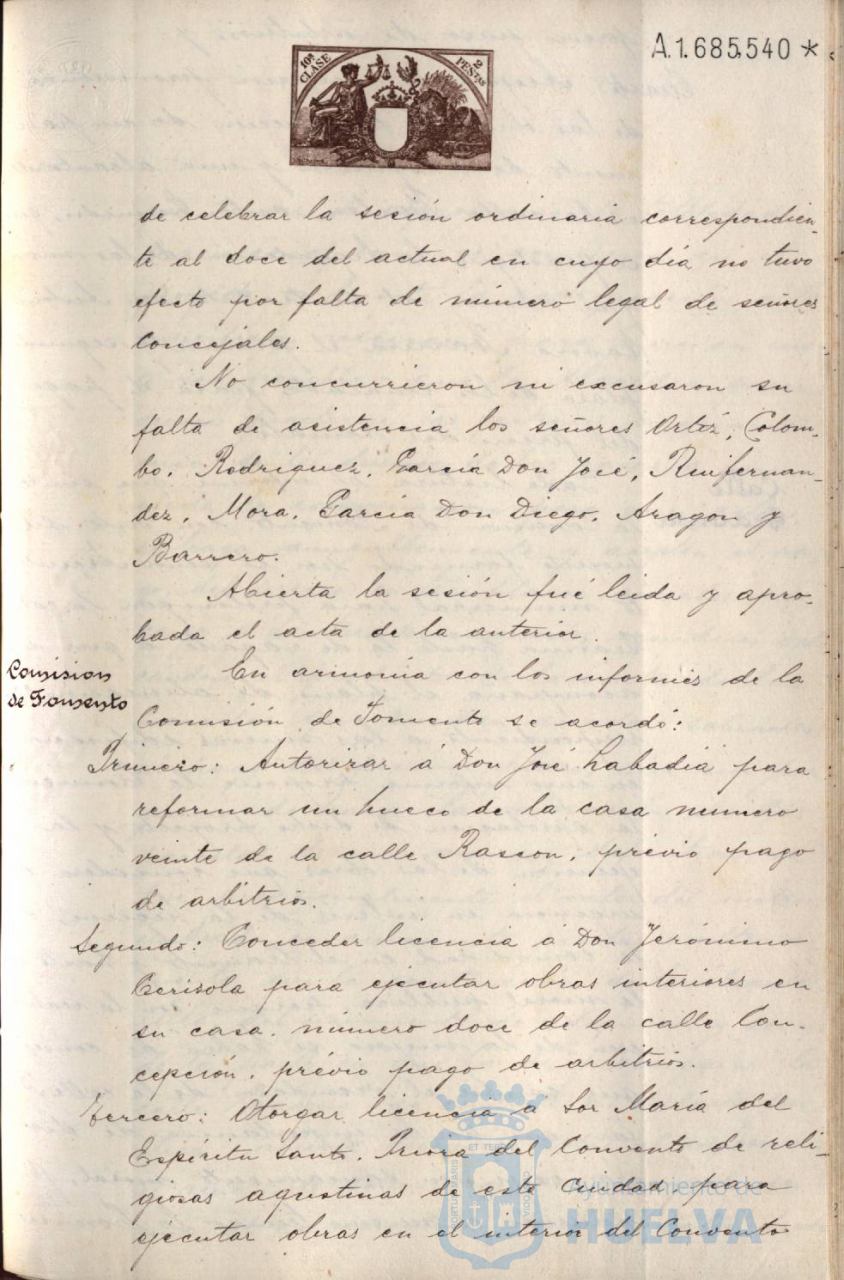 A.1.685.540 *
10ª CLASE
2 PESTAS
de celebrar la sesión ordinaria correspondien-
te al doce del actual en cuyo día no tuvo
efecto por falta de número legal de señores
Concejales.
No concurrieron ni excusaron su
falta de asistencia los señores Ortíz, Colom-
bo, Rodriguez, García Don José, Ruifernan-
dez, Mora, García Don Diego, Aragon y
Barrero.
Abierta la sesión fué leida y apro-
bada el acta de la anterior.
Comision
de Fomento
En armonía con los informes de la
Comisión de Fomento se acordó:
Primero: Autorizar á Don José Labadía para
reformar un hueco de la casa numero
veinte de la calle Rascon, prévio pago
de arbitrios.
Segundo: Conceder licencia á Don Jerónimo
Cerisola para ejecutar obras interiores en
su casa, número doce de la calle Con-
cepción, prévio pago de arbitrios.
Tercero: Otorgar licencia á Sor María del
Espíritu Santo, Priora del Convento de reli-
giosas agustinas de esta Ciudad para
ejecutar obras en el interior del Convento
Ayuntamiento de
HUELVA